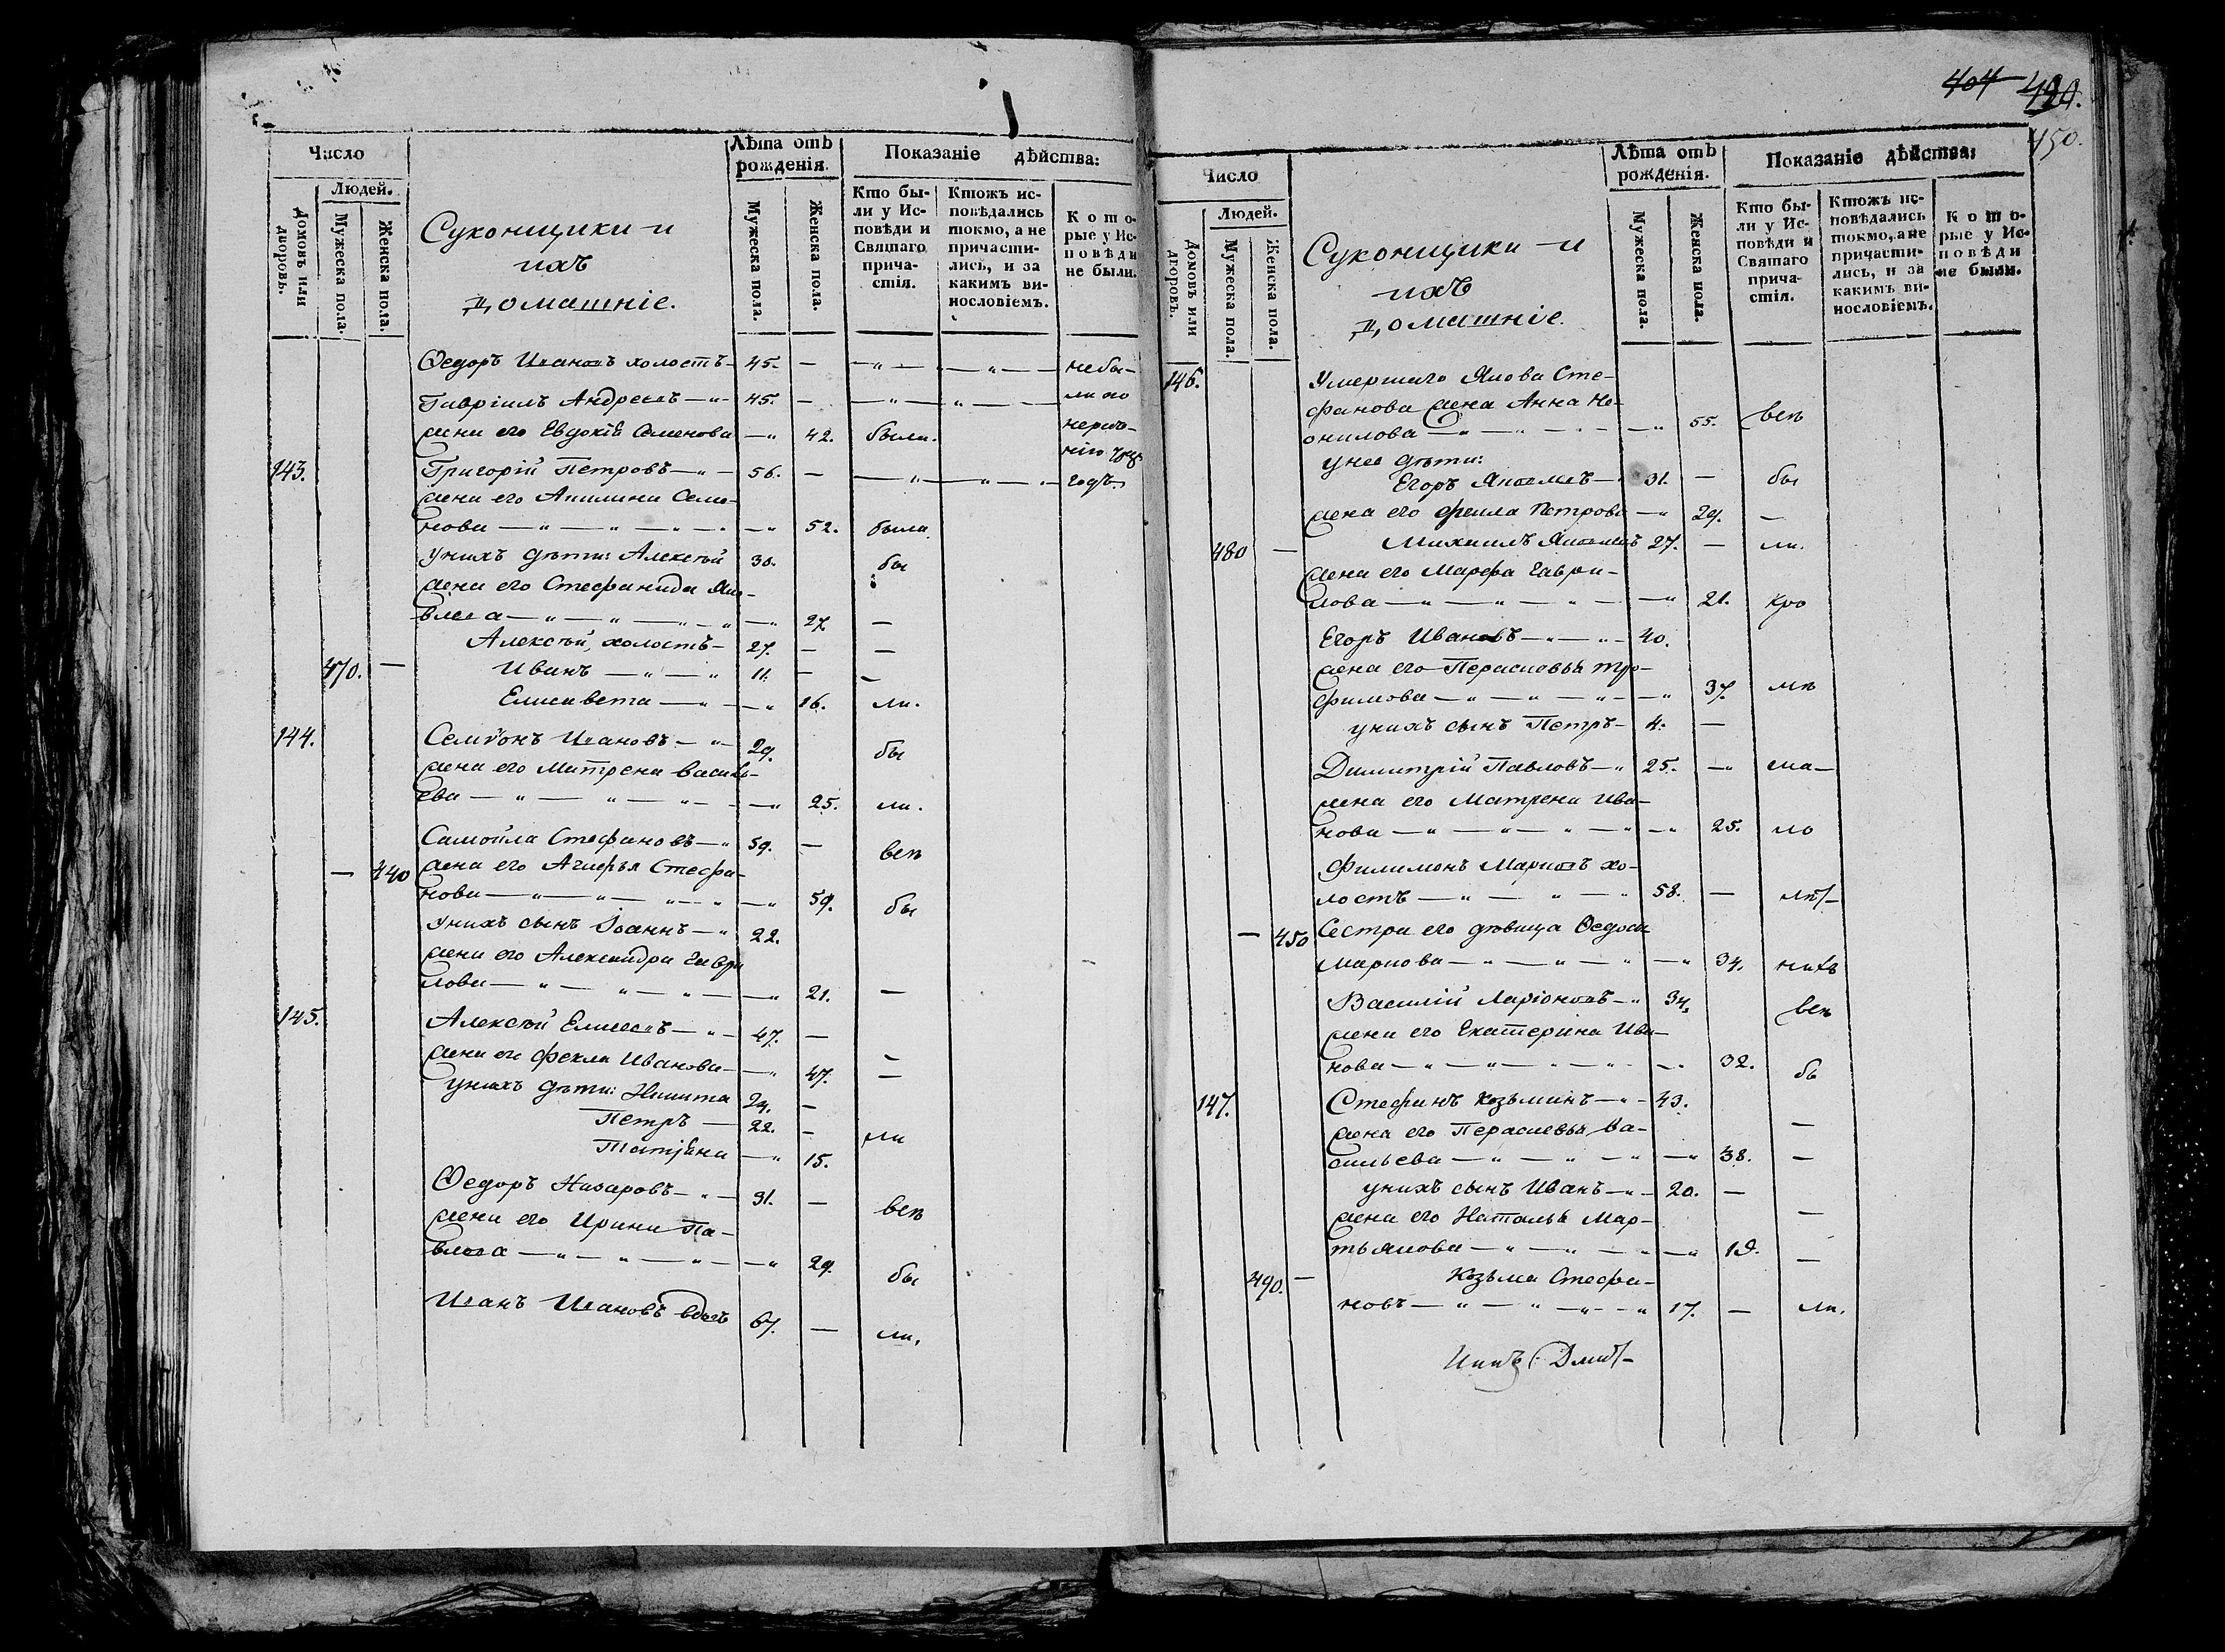 Число
Людей.
Домовъ или дворовъ.
Мужеска пола.
Женска пола.
Суконщики и
ихъ
домашніе.
Лѣта отъ рожденія.
Мужеска пола.
Женска пола.
Показаніе дѣйства:
Кто были у Исповѣди и Святаго причастія.
Ктожъ исповѣдались токмо, а не причастились, и за какимъ винословіемъ.
Которые у Исповѣди не были.
Ѳедоръ Ивановъ холостъ 45. — — " — — " — небы-
Гавріилъ Андреевъ — " 45. — — " — " — ли по
жена его Евдокія Семенова — " 42. была.
143. Григорій Петровъ — " — 56. — — " — " — годъ.
жена его Акилина Семе-
нова — " — " — " — " 52. была.
у нихъ дѣти: Алексѣй 30. бы
жена его Стефанида Яко-
влева — " — " — " — " 27. —
Алексѣй, холостъ — 27. — —
470. — Иванъ — " — " 11. — —
Елисавета — " — " 16. ли.
144. Семіонъ Ивановъ — " — 29. бы
жена его Матрена Василь-
ева — " — " — " — — " 25. ли.
Самойла Стефановъ — " 59. — всѣ
— 440 жена его Агафья Стефа-
нова — " — " — " — " — " 59. бы
у нихъ сынъ Іоаннъ — " 22.
жена его Александра Гаври
лова — " — " — " — — " 21. —
145. Алексѣй Елисеевъ — " — 47. —
жена его Фекла Иванова — " 47. —
у нихъ дѣти: Никита 24. —
Петръ — 22. —
Татіяна — " 15. ли
Ѳедоръ Назаровъ — " — 31. — всѣ
жена его Ирина Па-
влова — " — " — " — — " 29. бы
Иванъ Ивановъ вдовъ 67. — ли.
404 420.
450.
Число
Людей.
Домовъ или дворовъ.
Мужеска пола.
Женска пола.
Суконщики и
ихъ
домашніе.
Лѣта отъ рожденія.
Мужеска пола.
Женска пола.
Показаніе дѣйства:
Кто были у Исповѣди и Святаго причастія.
Ктожъ исповѣдались токмо, а не причастились, и за какимъ винословіемъ.
Которые у Исповѣди не были.
146. Умершаго Якова Сте-
фанова жена Анна
— " — " — — " 55. всѣ
у нее дѣти:
Егоръ Яковлевъ — 31. — бы
жена его Фекла Петрова — " 29. —
480 — Михаилъ Яковлевъ 27. — ли.
жена его Марфа Гаври-
лова — " — " — " — — " 21. кро
Егоръ Ивановъ — " — " — 40.
жена его Параскевья Тро-
фимова — " — " — " — — " 37. мѣ
у нихъ сынъ Петръ — 4. —
Димитрій Павловъ — " 25. — " ма-
жена его Матрена Ива-
нова — " — " — " — " — " 25. ло
Филимонъ Марковъ хо-
лостъ — " — " — " 58. — лѣт-
— 450 Сестра его дѣвица Ѳедосья
Маркова — " — " — " — " 34. нихъ
Василій Ларіоновъ — " 34. всѣ
жена его Екатерина Ива-
нова — " — " — " — " — " 32. бы
147. Стефанъ Козьминъ — " — 43. —
жена его Параскевья Ва-
сильева — " — " — " — " 38. —
у нихъ сынъ Иванъ — " — 20. — —
жена его Наталья Мар-
тьянова — " — " — " — " 19. —
490. — Козьма Стефа-
новъ — " — " — " — " 17. — ли.